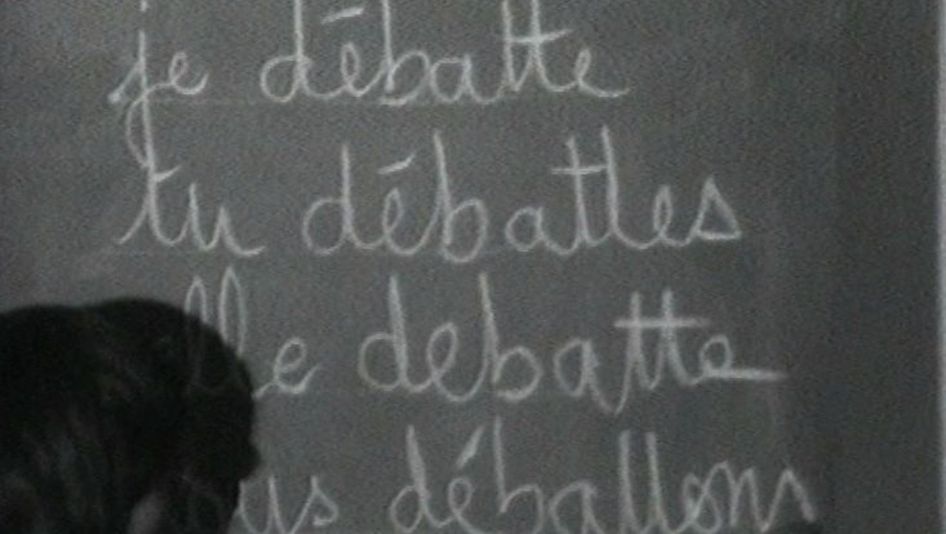 je débatte
tu débattes
lle debatte
us débattons